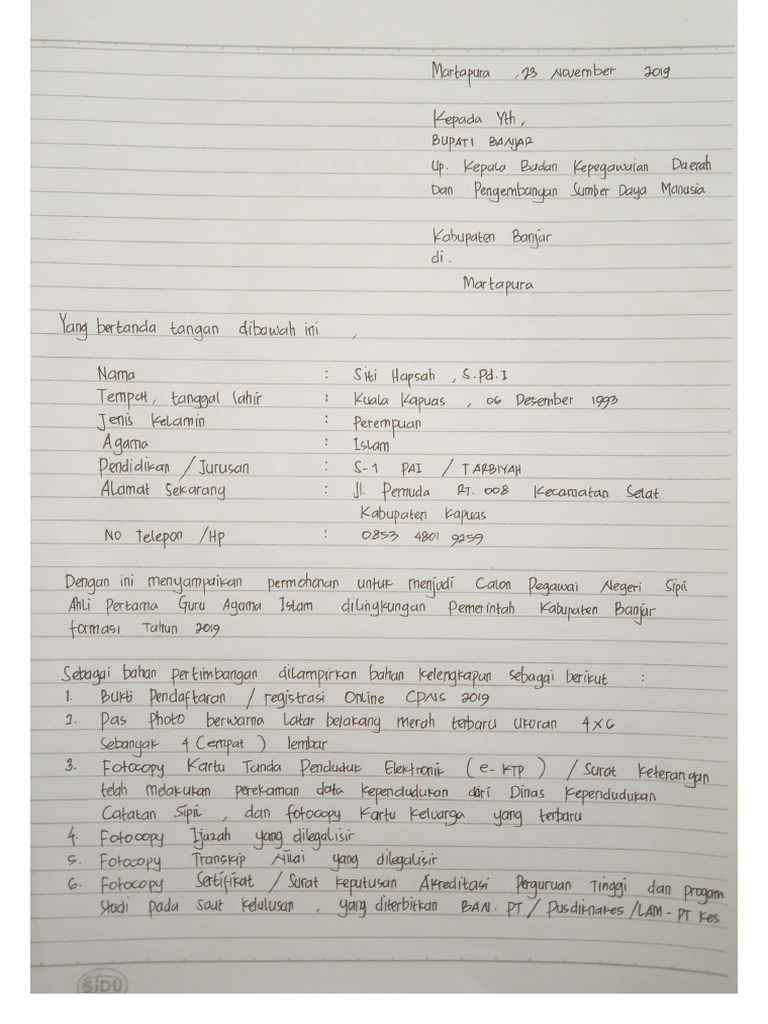 Martapura , 23 November 2019
Kepada Yth,
BUPATI BANJAR
Up. Kepala Badan Kepegawaian Daerah
Dan Pengembangan Sumber Daya Manusia
Kabupaten Banjar
di.
Martapura
Yang bertanda tangan dibawah ini ,
Nama : Siti Hapsah , S.Pd.I
Tempat, tanggal lahir : Kuala Kapuas , 06 Desember 1993
Jenis Kelamin : Perempuan
Agama : Islam
Pendidikan / Jurusan : S-1 PAI / TARBIYAH
Alamat Sekarang : Jl. Pemuda RT. 008 Kecamatan Selat
Kabupaten Kapuas
No Telepon /Hp : 0853 4801 9259
Dengan ini menyampaikan permohonan untuk menjadi Calon Pegawai Negeri Sipil
Ahli Pertama Guru Agama Islam dilingkungan Pemerintah Kabupaten Banjar
formasi Tahun 2019
Sebagai bahan pertimbangan dilampirkan bahan kelengkapan sebagai berikut :
1. Bukti Pendaftaran / registrasi Online CPNS 2019
2. Pas Photo berwarna latar belakang merah terbaru ukuran 4x6
Sebanyak 4 (empat) lembar
3. Fotocopy Kartu Tanda Penduduk Elektronik (e-KTP) / Surat Keterangan
telah melakukan perekaman data kependudukan dari Dinas Kependudukan
Catatan Sipil , dan fotocopy Kartu Keluarga yang terbaru
4. Fotocopy Ijazah yang dilegalisir
5. Fotocopy Transkip Nilai yang dilegalisir
6. Fotocopy Sertifikat / Surat Keputusan Akreditasi Perguruan Tinggi dan progam
Studi pada saat kelulusan , yang diterbitkan BAN. PT / Pusdiknakes /LAM-PT Kes
SIDU